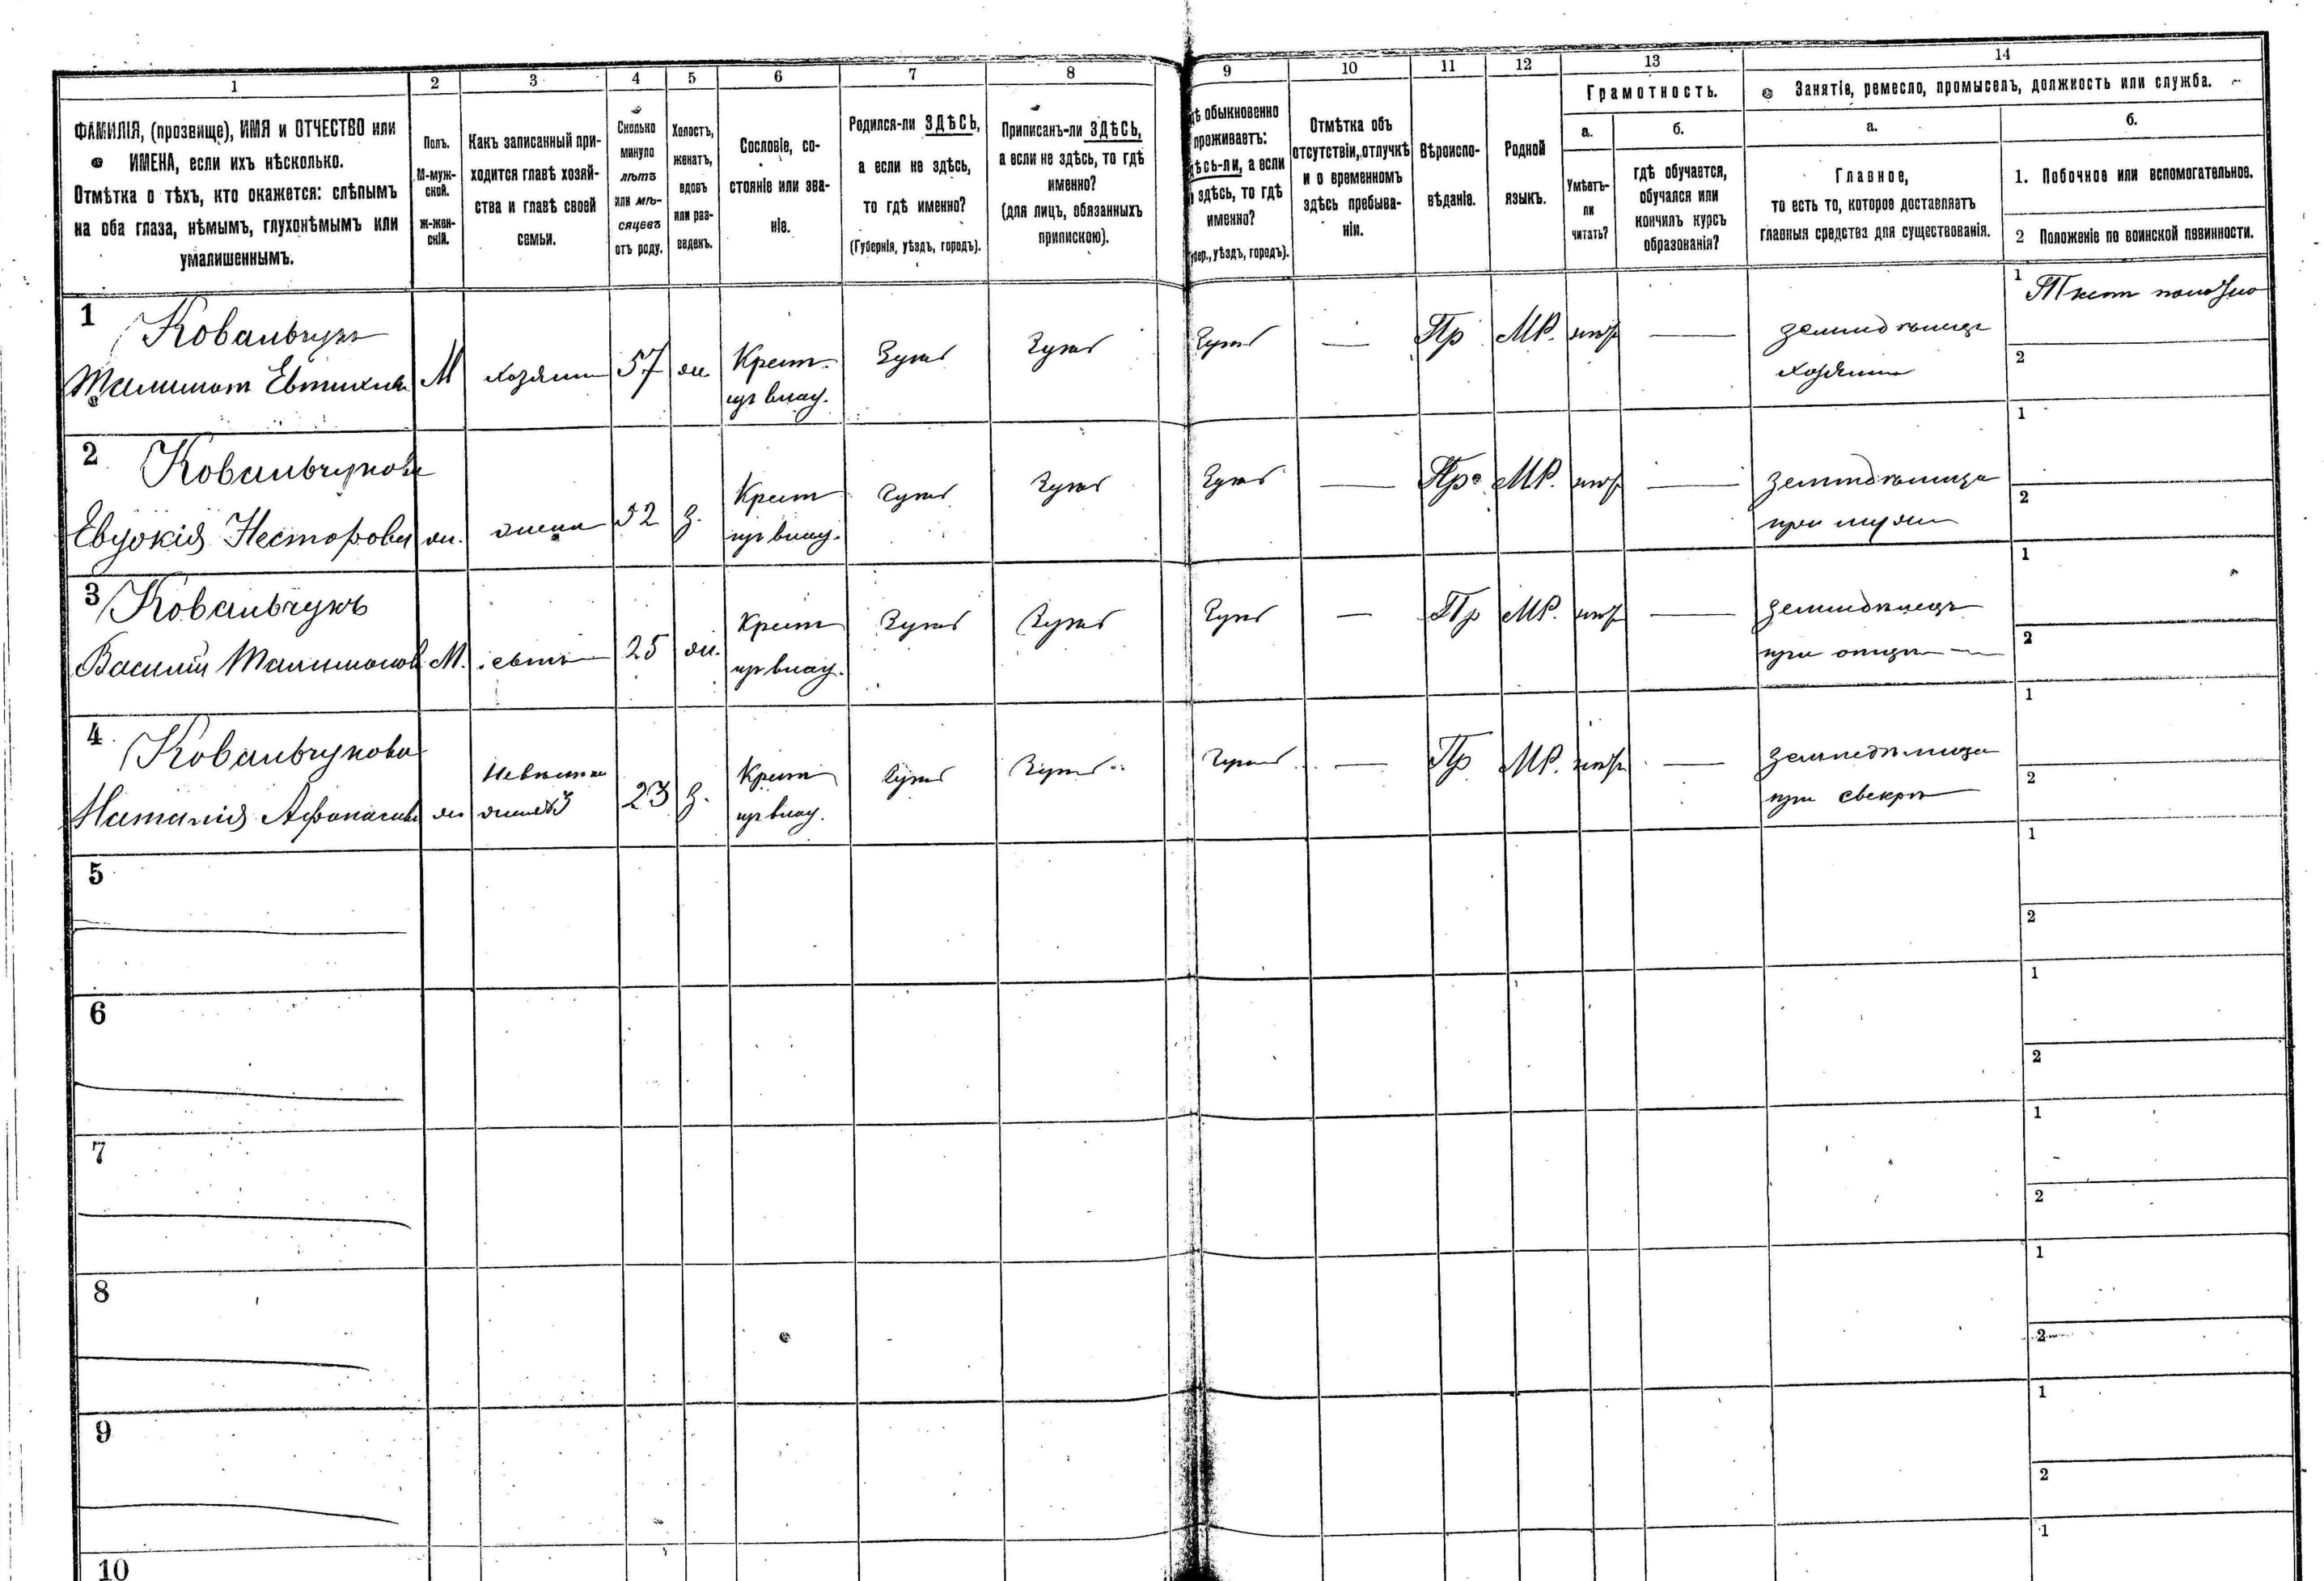 1 2 3 4 5 6 7 8 9 10 11 12 13 14
ФАМИЛІЯ, (прозвище), ИМЯ и ОТЧЕСТВО или
ИМЕНА, если ихъ нѣсколько.
Отмѣтка о тѣхъ, кто окажется: слѣпымъ
на оба глаза, нѣмымъ, глухонѣмымъ или
умалишеннымъ.
Полъ.
М-муж-
ской.
ж-жен-
скій.
Какъ записанный при-
ходится главѣ хозяй-
ства и главѣ своей
семьи.
Сколько
минуло
лѣтъ
или мѣ-
сяцевъ
отъ роду.
Холостъ,
женатъ,
вдовъ
или раз-
веденъ.
Сословіе, со-
стояніе или зва-
ніе.
Родился-ли ЗДѢСЬ,
а если не здѣсь,
то гдѣ именно?
(Губернія, уѣздъ, городъ).
Приписанъ-ли ЗДѢСЬ,
а если не здѣсь, то гдѣ
именно?
(для лицъ, обязанныхъ
припискою).
обыкновенно
проживаетъ:
а если
здѣсь, то гдѣ
именно?
уѣздъ, городъ).
Отмѣтка объ
отсутствіи, отлучкѣ
и о временномъ
здѣсь пребыва-
ніи.
Вѣроиспо-
вѣданіе.
Родной
языкъ.
Грамотность.
а.
Умѣетъ-
ли
читать?
б.
гдѣ обучается,
обучался или
кончилъ курсъ
образованія?
Занятіе, ремесло, промыселъ, должность или служба.
а.
Главное,
то есть то, которое доставляетъ
главныя средства для существованія.
б.
1. Побочное или вспомогательное.
2 Положеніе по воинской повинности.
1 Ковальчукъ
М хозяинъ 57 ж. Крест. Здѣсь Здѣсь Здѣсь — Пр МР. нѣтъ — земледѣлецъ
изъ влад. хозяинъ
1
2
2 Ковальчукова
Евдокія Несторова ж. жена 52 з. Крест Здѣсь Здѣсь Здѣсь — Пр. МР. нѣтъ — земледѣлица
изъ влад. при мужѣ
1
2
3 Ковальчукъ
Василій М. сынъ 25 ж. Крест Здѣсь Здѣсь Здѣсь — Пр МР. нѣтъ — земледѣлецъ
изъ влад. при отцѣ
1
2
4 Ковальчукова
Наталія ж Невѣстка 23 з. Крест Здѣсь Здѣсь Здѣсь — Пр МР. нѣтъ — земледѣлица
изъ влад. при свекрѣ
1
2
5
1
2
6
1
2
7
1
2
8
1
2
9
1
2
10
1